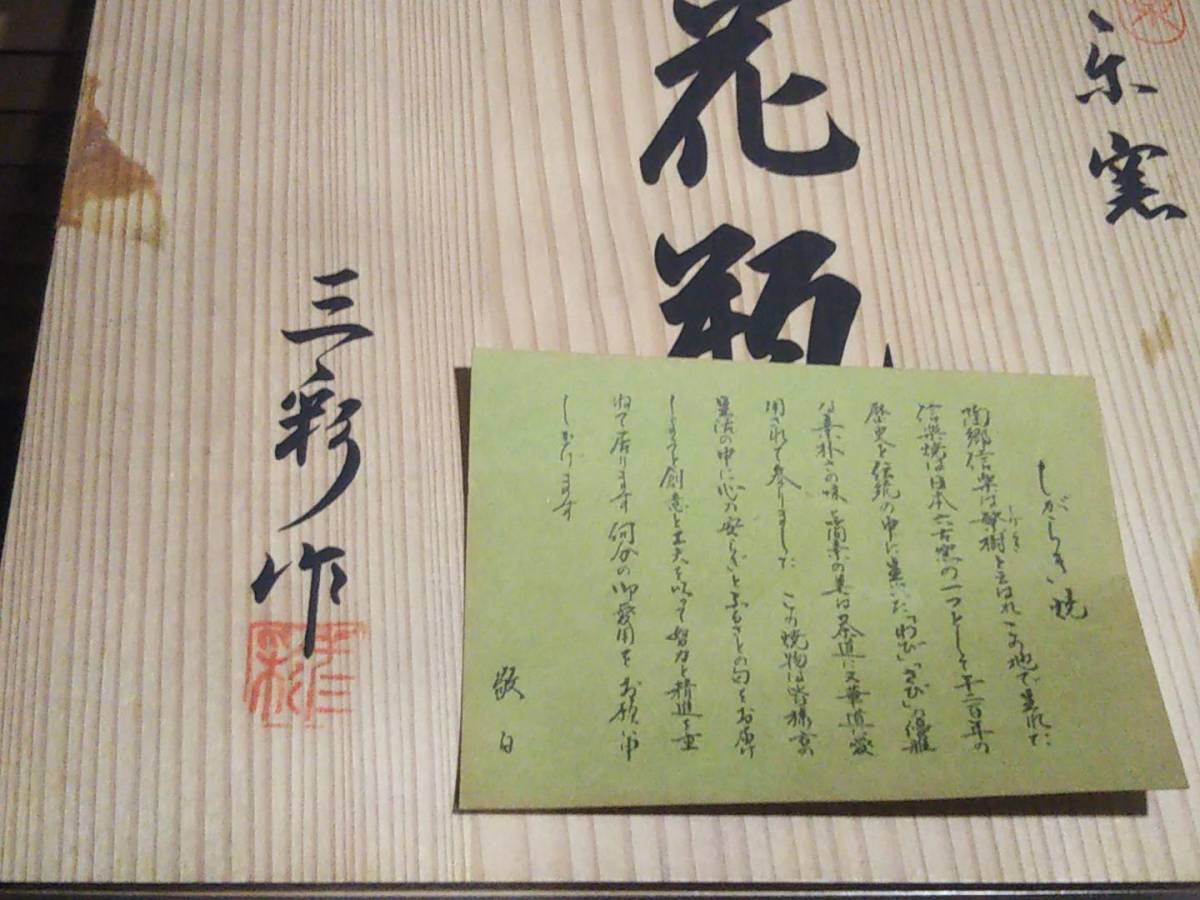 窯
花瓶
三彩作
しがらき焼
陶郷信楽は繁樹と云はれこの地で生れた
しげき
信楽焼は日本六古窯の一つとして千二百年の
歴史と伝統の中に生いた「わび」「さび」の優雅
な素朴さの味と簡素の美は茶道に又華道に愛
用されて参りました この焼物は皆様方の
生活の中に心の安らぎとふるさとの匂をお届け
しようと創意と工夫を以って努力と精進を重
ねて居ります 何分の御愛用をお願い申
しあげます
敬白